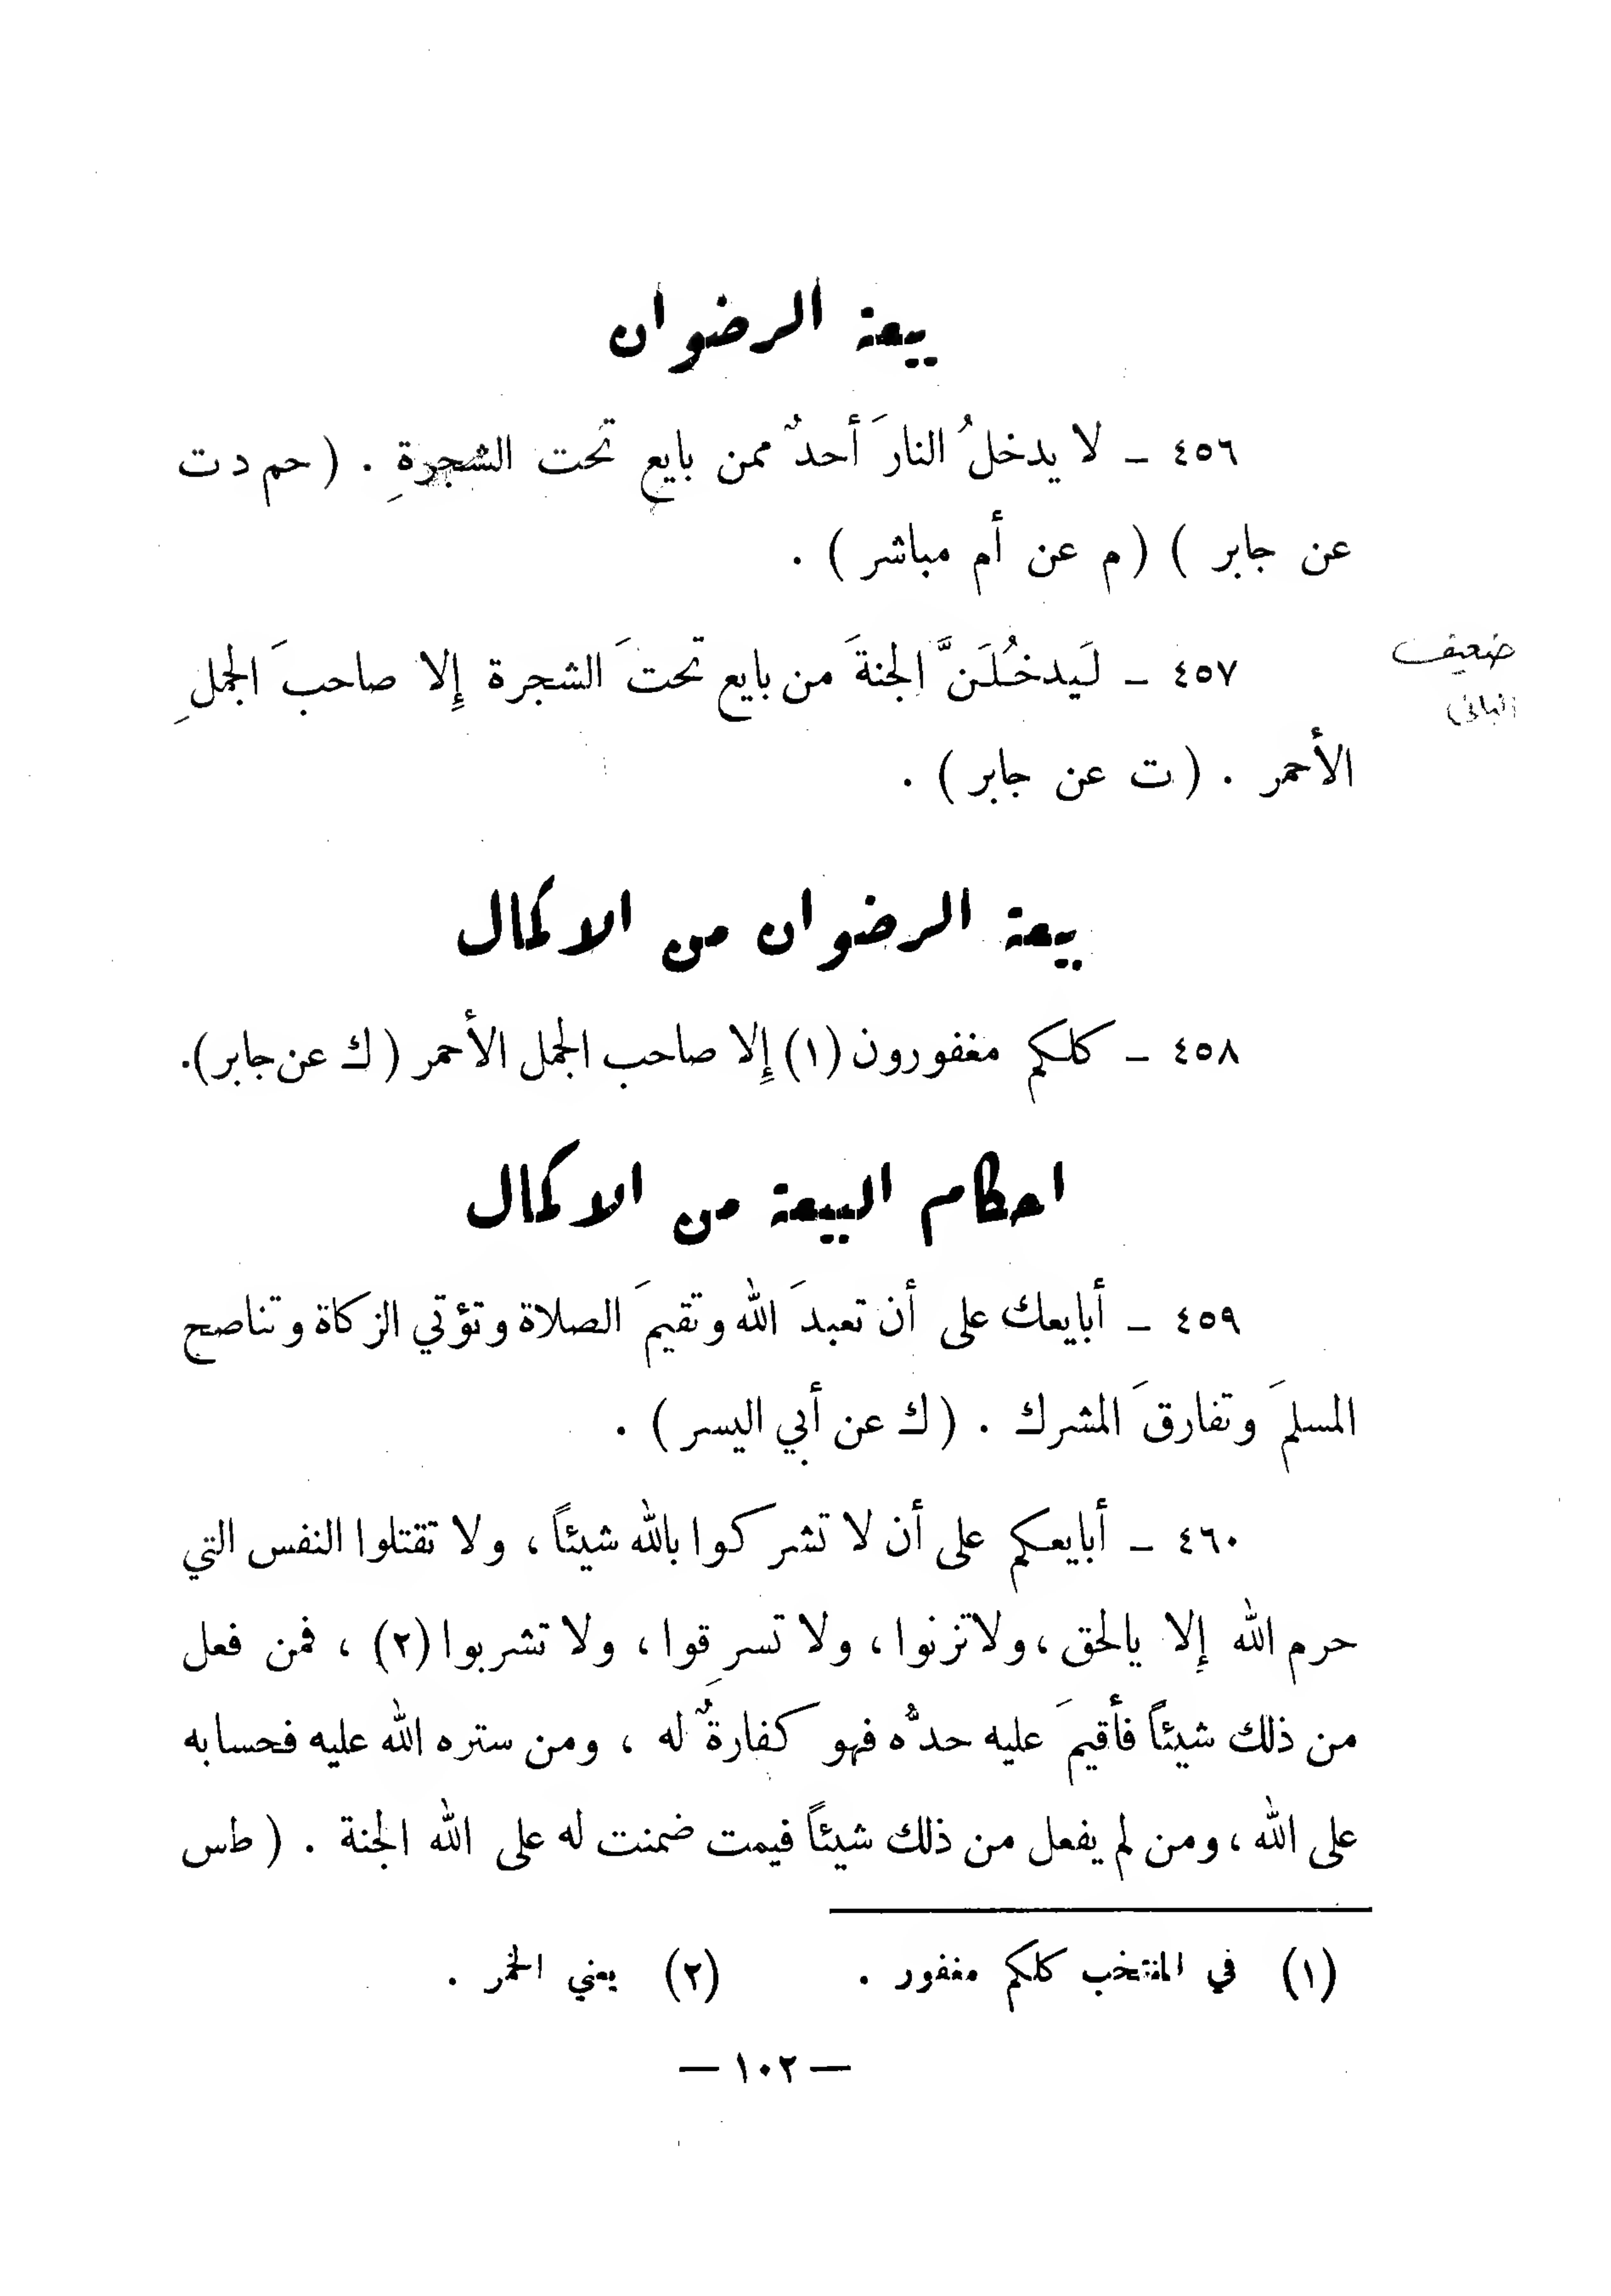 بيعة الرضوان
٤٥٦ ـ لا يدخلُ النارَ أحدٌ ممن بايع تحت الشجرةِ . ( حم د ت
عن جابر ) ( م عن أم مباشر ) .
٤٥٧ ـ لَيدخُلَنَّ الجنةَ من بايع تحتَ الشجرة إلا صاحبَ الجملِ
ضعيف
البانى
الأحمر . ( ت عن جابر ) .
بيعة الرضوان من الاكمال
٤٥٨ ـ كلكم مغفورون (١) إلا صاحب الجمل الأحمر ( ك عن جابر ).
احكام البيعة من الاكمال
٤٥٩ ـ أبايعك على أن تعبدَ الله وتقيمَ الصلاة وتؤتي الزكاة وتناصح
المسلمَ وتفارقَ المشرك . ( ك عن أبي اليسر ) .
٤٦٠ ـ أبايعكم على أن لا تشركوا بالله شيئاً ، ولا تقتلوا النفس التي
حرم الله إلا بالحق ، ولا تزنوا ، ولا تسرِقوا ، ولا تشربوا (٢) ، فمن فعل
من ذلك شيئاً فأقيمَ عليه حدُّه فهو كفارةٌ له ، ومن ستره الله عليه فحسابه
على الله ، ومن لم يفعل من ذلك شيئاً فيمت ضمنت له على الله الجنة . ( طس
(١) في المنتخب كلكم مغفور . (٢) يعني الخمر .
— ١٠٢ —